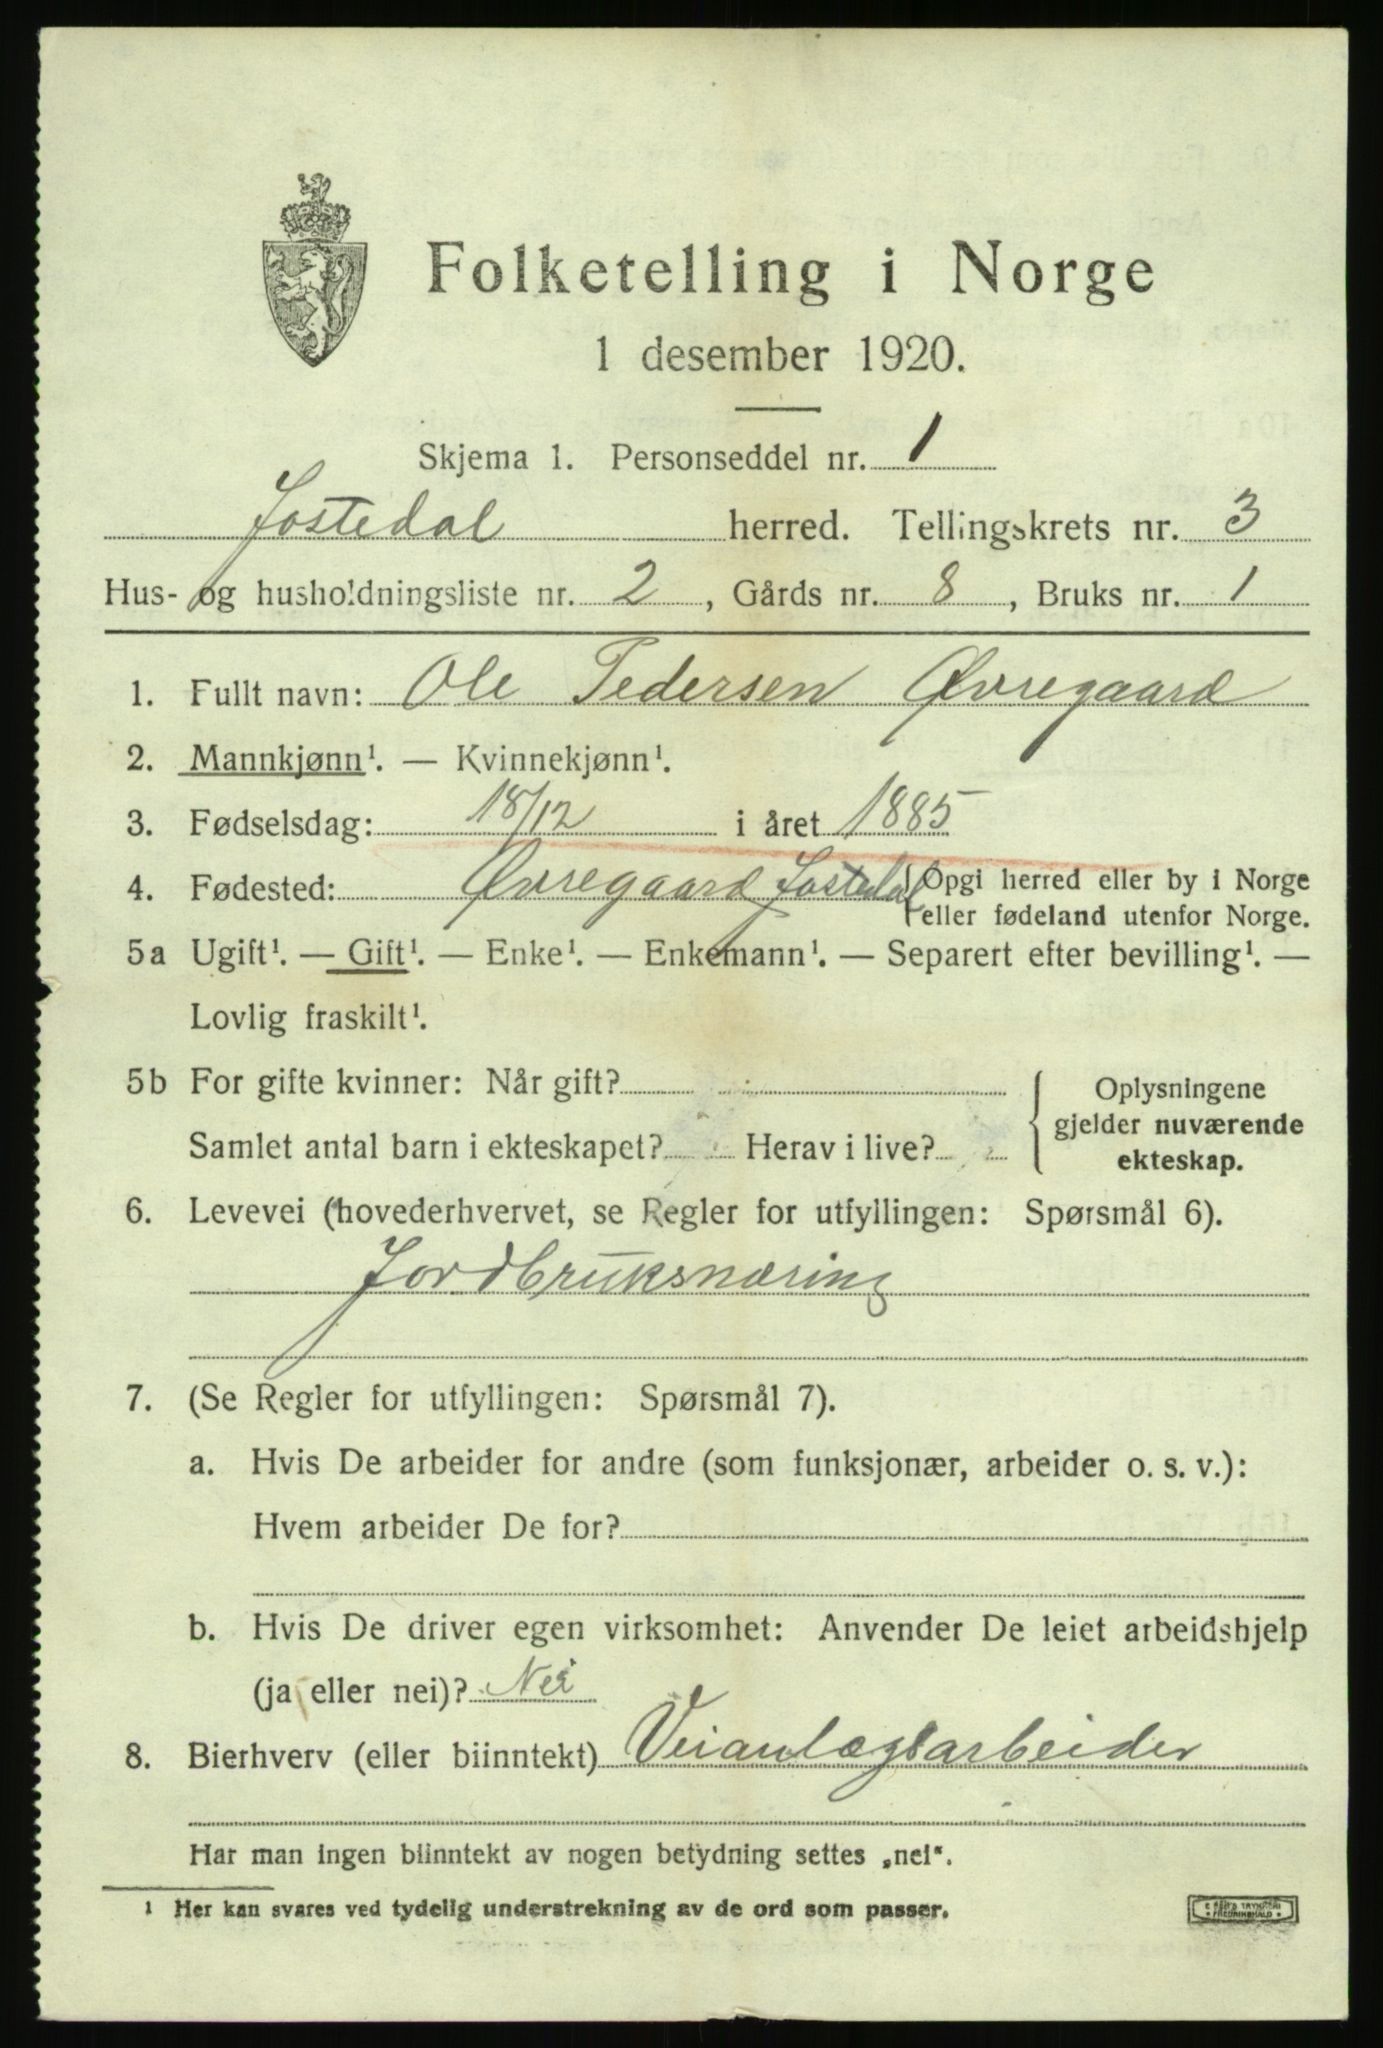 Folketelling i Norge
1 desember 1920.
Skjema 1. Personseddel nr. 1
Jostedal herred. Tellingskrets nr. 3
Hus- og husholdningsliste nr. 2, Gårds nr. 8, Bruks nr. 1
1. Fullt navn: Ole Pedersen Øvregaard
2. Mannkjønn¹. — Kvinnekjønn¹.
3. Fødselsdag: 18/12 i året 1885
4. Fødested: Øvregaard Jostedal {Opgi herred eller by i Norge
eller fødeland utenfor Norge.
5a Ugift¹. — Gift¹. — Enke¹. — Enkemann¹. — Separert efter bevilling¹. —
Lovlig fraskilt¹.
5b For gifte kvinner: Når gift?
Samlet antal barn i ekteskapet? Herav i live?
{ Oplysningene
gjelder nuværende
ekteskap.
6. Levevei (hovederhvervet, se Regler for utfyllingen: Spørsmål 6).
Jordbruksnæring
7. (Se Regler for utfyllingen: Spørsmål 7).
a. Hvis De arbeider for andre (som funksjonær, arbeider o. s. v.):
Hvem arbeider De for?
b. Hvis De driver egen virksomhet: Anvender De leiet arbeidshjelp
(ja eller nei)? Nei
8. Bierhverv (eller biinntekt) Veianlægsarbeider
Har man ingen biinntekt av nogen betydning settes „nei".
1 Her kan svares ved tydelig understrekning av de ord som passer.